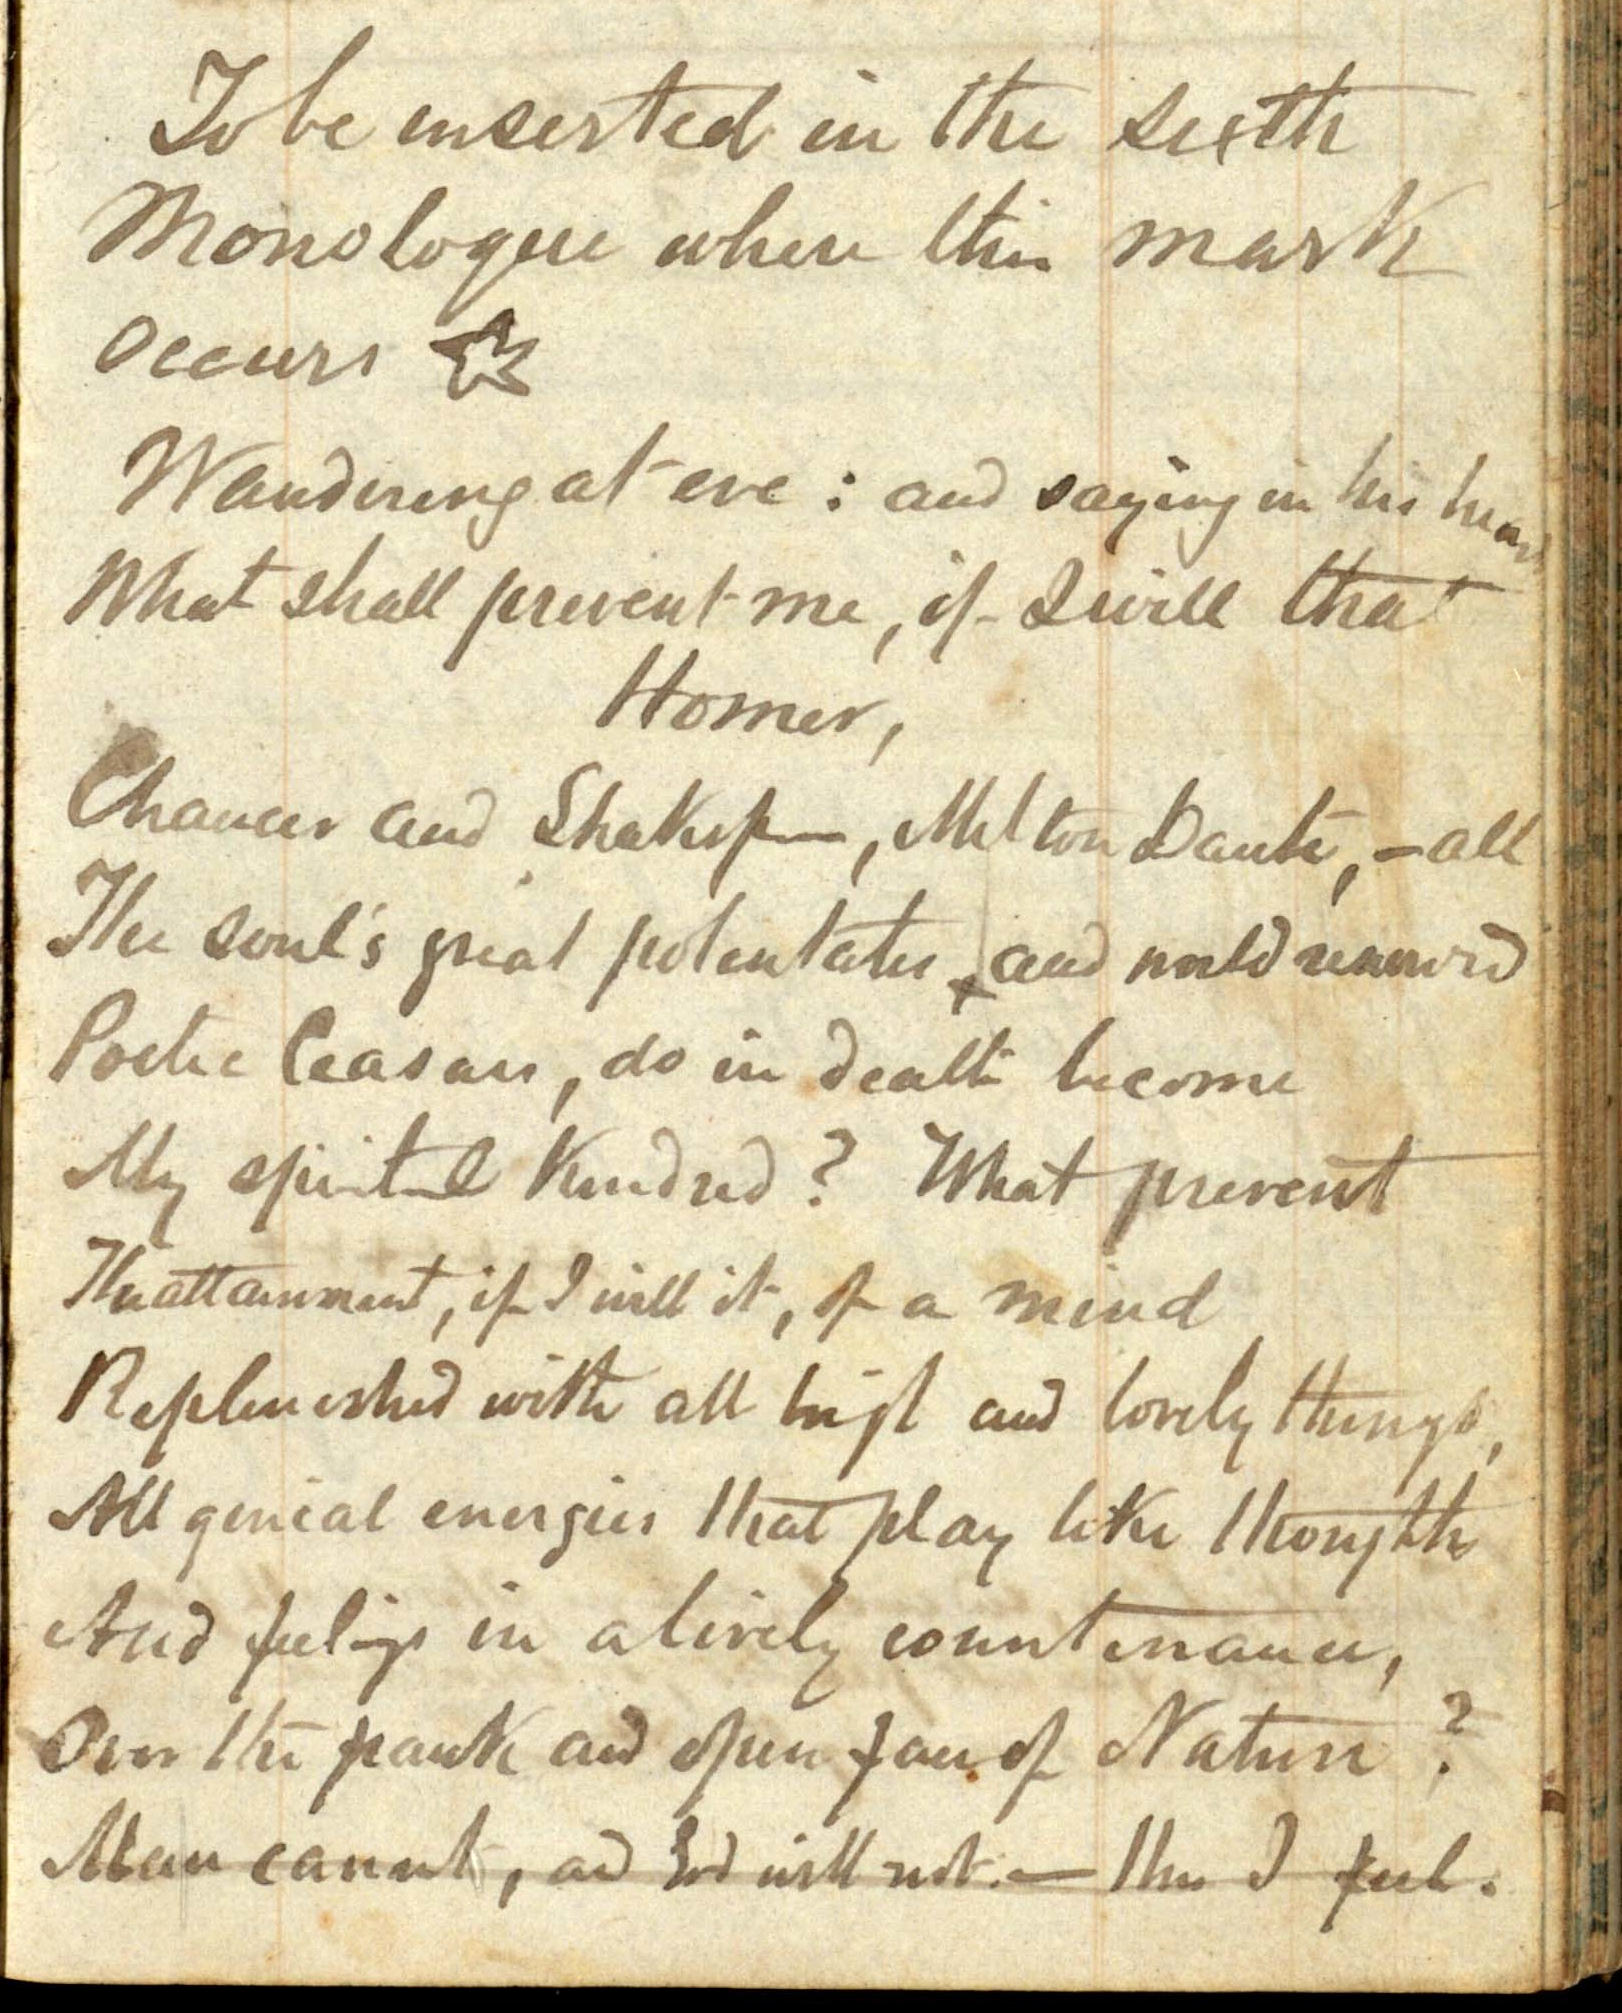 To be inserted in the sixth
Monologue where this mark
occurs ☆
Wandering at eve : and saying in his heart
What shall prevent me, if I will that
Homer,
Chaucer and Shakspere, Milton Dante, – all
The soul's great potentates, and world renownd
Poetic Ceasars, do in death become
My spiritual Kindred? What prevent
The attainment, if I will it, of a mind
Replenished with all high and lovely things,
All genial energies that play like thoughts
And feelings in a lively countenance,
Over the frank and open face of Nature?
Man cannot, and God will not. — this I feel.